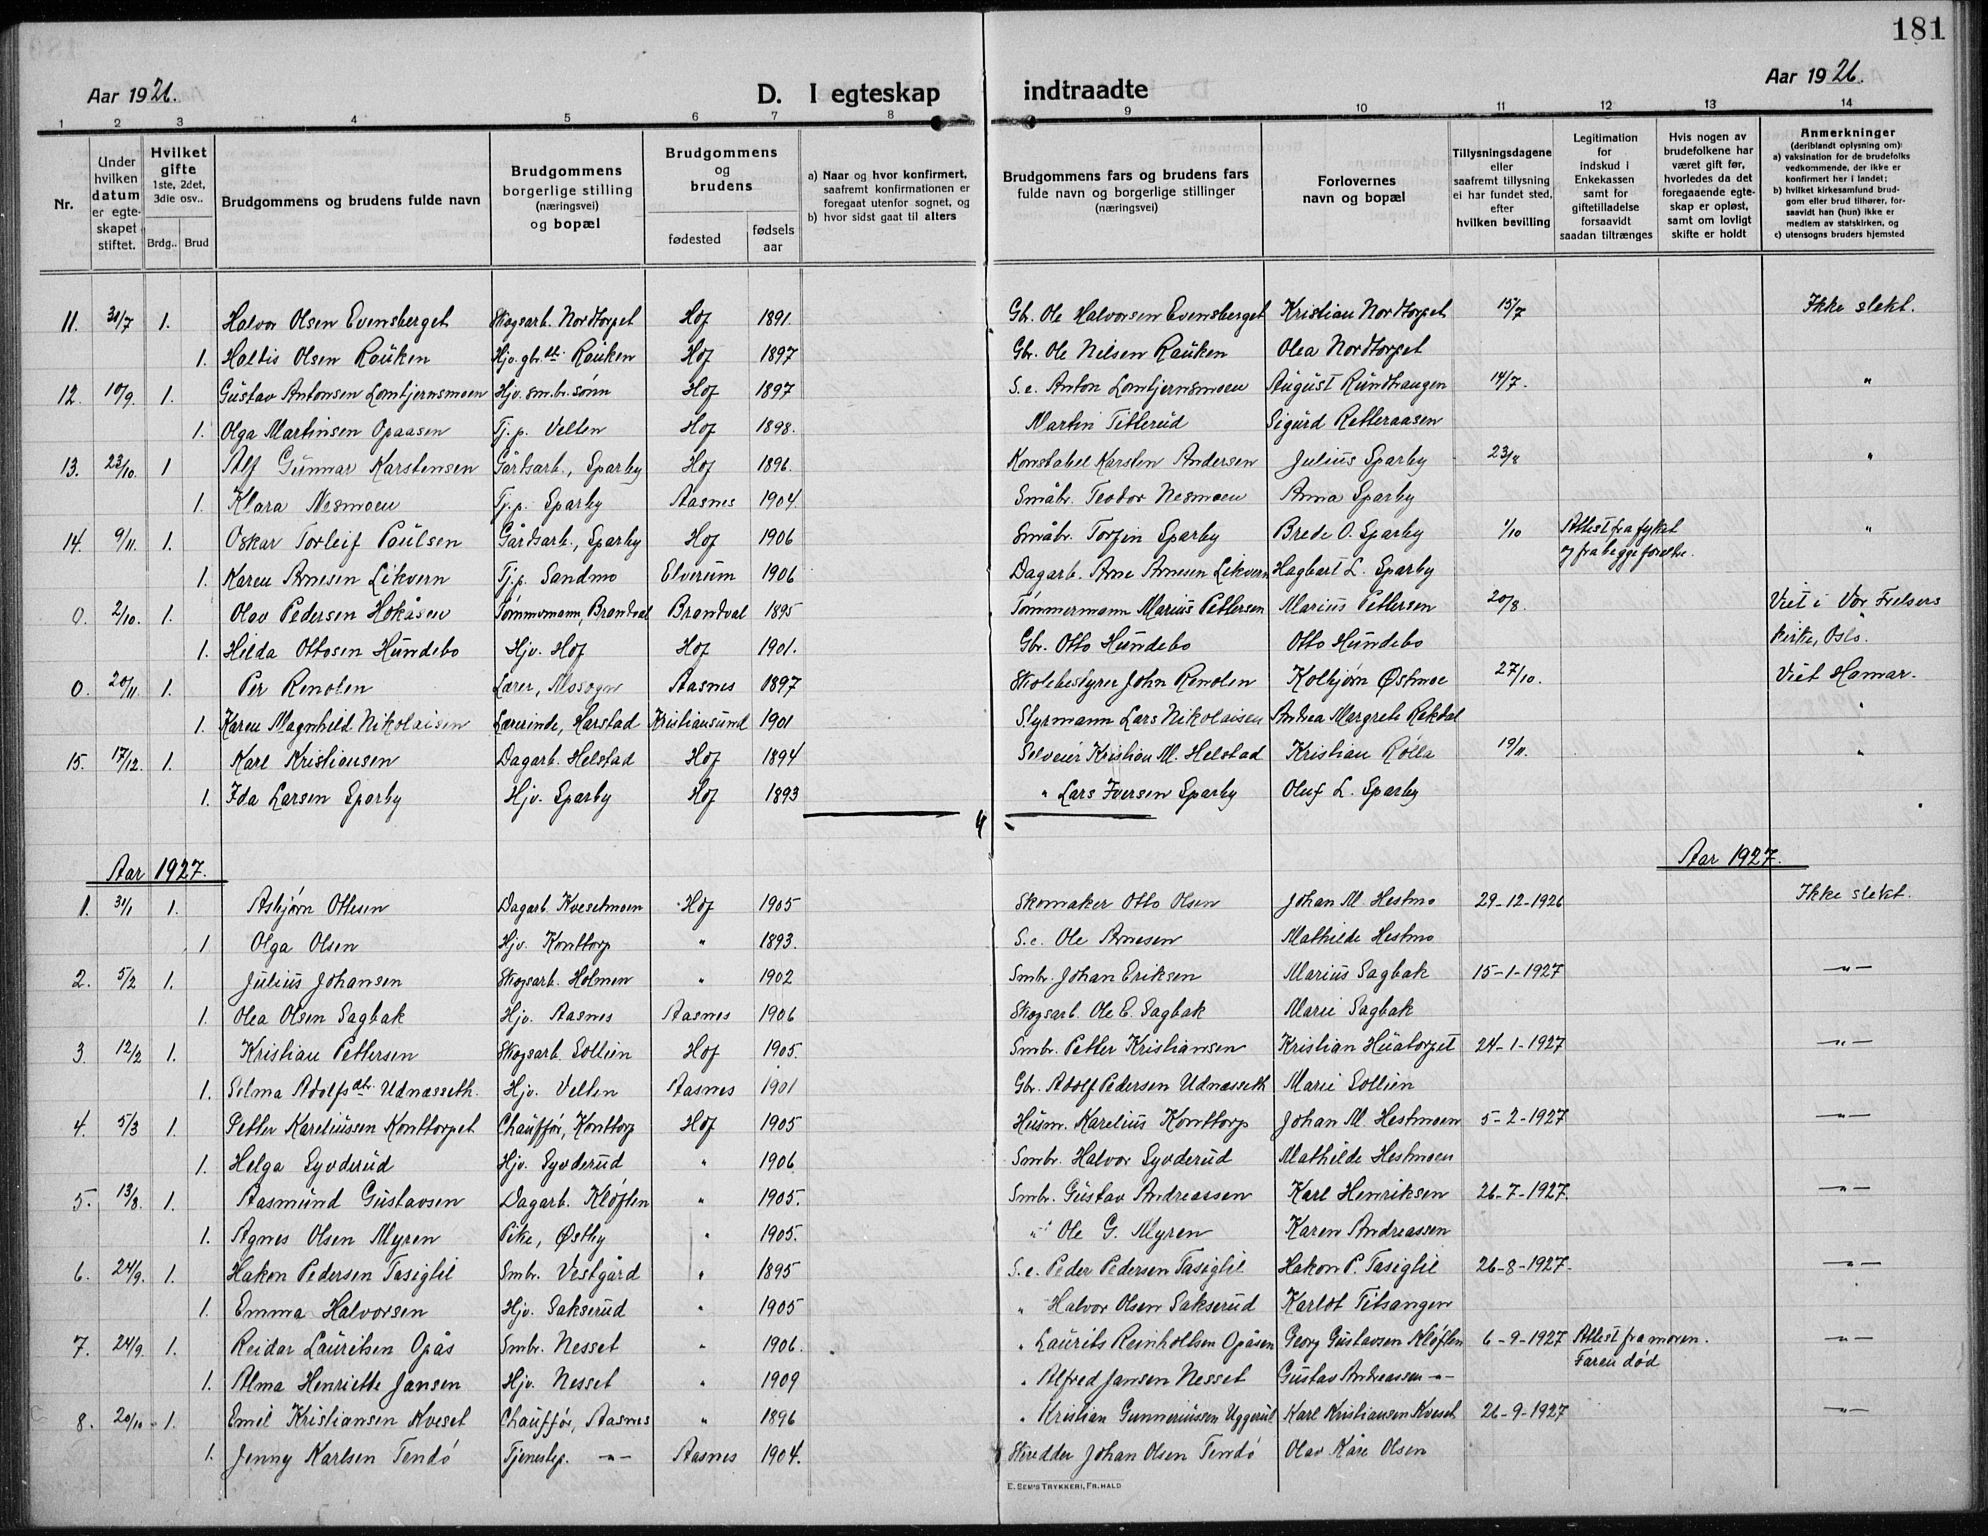 181
Aar 1926. D. I egteskap indtraadte Aar 1926.
1 2 3 4 5 6 7 8 9 10 11 12 13 14
Nr.
Under hvilken datum er egteskapet stiftet.
Hvilket gifte 1ste, 2det, 3die osv..
Brdg.. Brud
Brudgommens og brudens fulde navn
Brudgommens borgerlige stilling (næringsvei) og bopæl
Brudgommens og brudens
fødested fødsels aar
a) Naar og hvor konfirmert, saafremt konfirmationen er foregaat utenfor sognet, og
b) hvor sidst gaat til alters
Brudgommens fars og brudens fars fulde navn og borgerlige stillinger (næringsvei)
Forlovernes navn og bopæl
Tillysningsdagene eller saafremt tillysning ei har fundet sted, efter hvilken bevilling
Legitimation for indskud i Enkekassen samt for giftetilladelse forsaavidt saadan tiltrænges
Hvis nogen av brudefolkene har været gift før, hvorledes da det foregaaende egteskap er opløst, samt om lovligt skifte er holdt
Anmerkninger (deriblandt oplysning om):
a) vaksination for de brudefolks vedkommende, der ikke er konfirmert her i landet;
b) hvilket kirkesamfund brudgom eller brud tilhører, forsaavidt han (hun) ikke er medlem av statskirken, og
c) utensogns bruders hjemsted
11. 31/7 1. Halvor Olsen Evensberget Skogsarb. Nordtorpet Hof 1891. Gb. Ole Halvorsen Evensberget Kristian Nordtorpet 15/7 Ikke slekt.
1. Haldis Olsen Rauken Hjv. gbr.dt. Rauken Hof 1897 Gbr. Ole Nilsen Rauken Olea Nordtorpet
12. 10/9. 1. Gustav Antonsen Lomtjernsmoen Hjv. smbr. sønn Hof 1897 S.e. Anton Lomtjernsmoen August Rundhaugen 14/7. "
1. Olga Martinsen Opaasen Tj.p. Velten Hof 1898. Martin Titterud Sigurd Retteraasen
13. 23/10. 1 Alf Gunnar Karstensen Gårdsarb., Sparby Hof 1896. Konstabel Karsten Andersen Julius Sparby 23/8 "
1. Klara Nesmoen Tj.p. Sparby Aasnes 1904. Småbr. Teodor Nesmoen Anna Sparby
14. 9/11. 1. Oskar Torleif Paulsen Gårdsarb., Sparby Hof 1906 Småbr. Torfin Sparby Brede O. Sparby 1/10 Attest fra fylket "
og fra begge foreldre.
1. Karen Arnesen Likvern Tj.p. Sandmo Elverum 1906 Dagarb. Arne Arnesen Likvern Hagbart L. Sparby
0. 2/10. 1. Olav Pedersen Hokåsen Tømmermann, Brandval Brandval 1895 Tømmermann Marius Pettersen Marius Pettersen 20/8. Viet i Vor Frelsers
1. Hilda Ottosen Hundebo Hjv. Hof Hof 1901. Gbr. Otto Hundebo Otto Hundebo kirke, Oslo.
0. 20/11. 1. Per Renolen Lærer, Mosogn Aasnes 1897 Skolebestyrer John Renolen Kolbjørn Østmoe 27/10. Viet Hamar.
1. Karen Magnhild Nikolaisen Lærerinde, Harstad Kristiansund 1901 Styrmann Lars Nikolaisen Andrea Margrete Rekdal "
15. 17/12. 1. Karl Kristiansen Dagarb. Helstad Hof 1894 Selveier Kristian M. Helstad Kristian Rølla 19/11. "
1. Ida Larsen Sparby Hjv. Sparby Hof 1893 " Lars Iversen Sparby Oluf L. Sparby
Aar 1927. Aar 1927.
1. 31/1 1. Asbjørn Ottesen Dagarb. Kvesetmoen Hof 1905 Skomaker Otto Olsen Johan M. Hestmo 29-12-1926 Ikke slekt.
1 Olga Olsen Hjv. Konttorp " 1893. S.e. Ole Arnesen Mathilde Hestmo
2. 5/2 1. Julius Johansen Skogsarb. Holmen " 1902 Smbr. Johan Eriksen Marius Sagbak 15-1-1927 —"—
1. Olea Olsen Sagbak Hjv. Aasnes Aasnes 1906 Skogsarb. Ole E. Sagbak Marie Sagbak
3. 12/2 1. Kristian Pettersen Skogsarb. Sollien Hof 1905. Smbr. Petter Kristiansen Kristian Huatorpet 24-1-1927 —"—
1. Selma Adolfsdtr. Udnesseth. Hjv. Velten Aasnes 1901 Gbr. Adolf Pedersen Udnesseth Marie Sollien
4. 5/3 1. Petter Kareliussen Konttorpet Chauffør, Konttorp Hof 1905 Husm. Karelius Konttorp Johan M. Hestmoen 5-2-1927 —"—
1. Helga Syvderud Hjv. Syvderud " 1906 Smbr. Halvor Syvderud Mathilde Hestmoen
5. 13/8. 1. Aasmund Gustavsen Dagarb. Kløften " 1905. Smbr. Gustav Andreassen Karl Henriksen 26-7-1927. —"—
1. Agnes Olsen Myren Pike, Østby " 1905. " Ole G. Myren Karen Andreassen
6. 24/9. 1. Hakon Pedersen Tasiglil Smbr. Vestgård " 1895 S.e. Peder Pedersen Tasiglil Hakon P. Tasiglil 26-8-1927. —"—
1. Emma Halvorsen Hjv. Sakserud " 1905 " Halvor Olsen Sakserud Karlot Titsangen
7. 24/9. 1. Reidar Lauritsen Opås Smbr. Nesset " 1906. " Laurits Reinholtsen Opåsen Georg Gustavsen Kløften 6-9-1927 Attest fra moren. —"—
Faren død
1. Alma Henriette Jansen Hjv. Nesset " 1909 " Alfred Jansen Nesset Gustav Andreassen —"—
8. 20/10 1. Emil Kristiansen Kveset Chauffør, Aasnes " 1896 " Kristian Gunneriussen Uggerud Karl Kristiansen Kveset 26-9-1927 —"—
1. Jenny Karlsen Tendø Tjenestep. —"— Aasnes 1904. Skredder Johan Olsen Tendø Olav Kåre Olsen
E. SEM'S TRYKKERI, FR.HALD